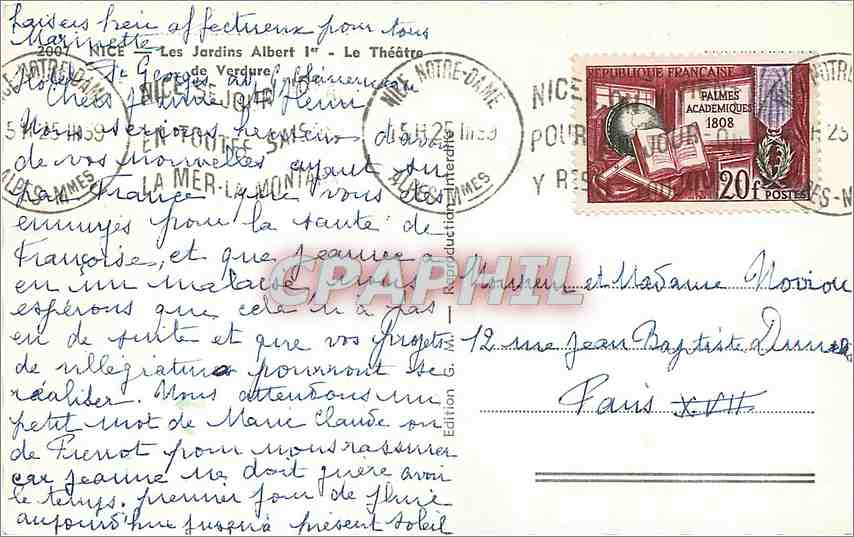 baisers bien affectueux pour tous
Marinette
2007 NICE — Les Jardins Albert Ier - Le Théâtre
de Verdure
Hotel St Georges av. Clémenceau
Chers Jeanne et Henri
Nous serions heureux d'avoir
de vos nouvelles ayant su
par France que vous êtes
ennuyés pour la santé de
Françoise, et que Jeanne a
eu un malaise, nous
espérons que cela n'a pas
eu de suite et que vos projets
de villégiature pourront se
réaliser. Nous attendons un
petit mot de Marie Claude ou
de Pierrot pour nous rassurer
car Jeanne ne doit guère avoir
le temps. premier jour de pluie
aujourd'hui jusqu'à présent soleil
NICE-NOTRE-DAME
15 H 25 III 59
ALPES-MMES
EN TOUTE SAISON
LA MER-LA MONTAGNE
NICE NOTRE-DAME
15 H 25 III 59
ALPES-MMES
NICE
POUR
Y RES
REPUBLIQUE FRANÇAISE
PALMES
ACADEMIQUES
1808
20f
POSTES
Edition G. M. — Reproduction Interdite
CPAPHIL
Monsieur et Madame Noviou
12 rue Jean Baptiste Dumas
Paris XVII